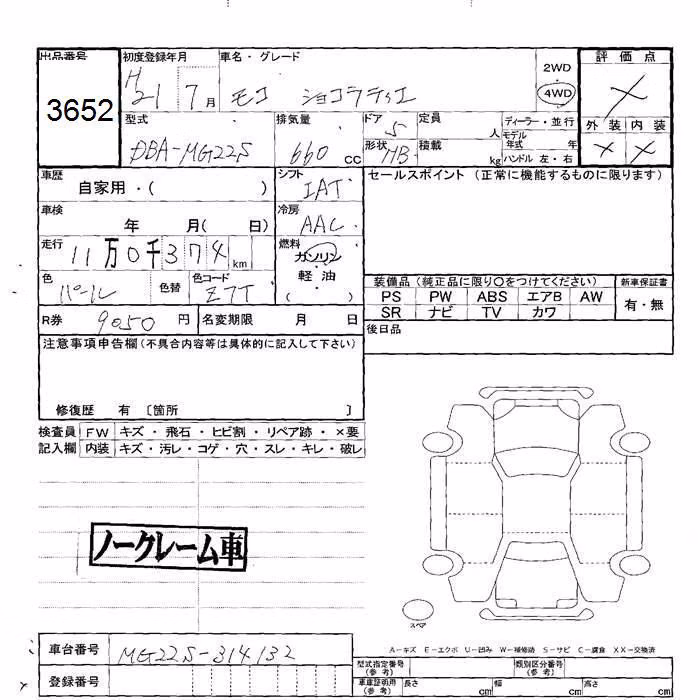 出品番号 初度登録年月 車名・グレード 評価点
3652 H21 7月 モコ ショコラティエ 2WD 4WD
外装 内装
型式 排気量 ドア 定員 ディーラー・並行
DBA-MG22S 660cc 5 人 モデル年式 年
形状 積載 ハンドル 左・右
HB kg
車歴 自家用・( ) シフト IAT セールスポイント (正常に機能するものに限ります)
車検 年 月( 日) 冷房 AAC
走行 11万0千374km 燃料 ガソリン・軽油・( )
色 パール 色替 色コード Z7T
装備品 (純正品に限り○をつけてください) 新車保証書
PS PW ABS エアB AW 有・無
SR ナビ TV カワ
R券 9050円 名変期限 月 日 後日品
注意事項申告欄 (不具合内容等は具体的に記入して下さい)
修復歴 有 〔箇所 〕
検査員 FW キズ・飛石・ヒビ割・リペア跡・×要
記入欄 内装 キズ・汚レ・コゲ・穴・スレ・キレ・破レ
ノークレーム車
スペア
A-キズ E-エクボ U-凹み W-補修跡 S-サビ C-腐食 XX-交換済
車台番号 MG22S-314132
登録番号
型式指定番号(参考) 類別区分番号(参考)
車庫証明用(参考) 長さ cm 幅 cm 高さ cm